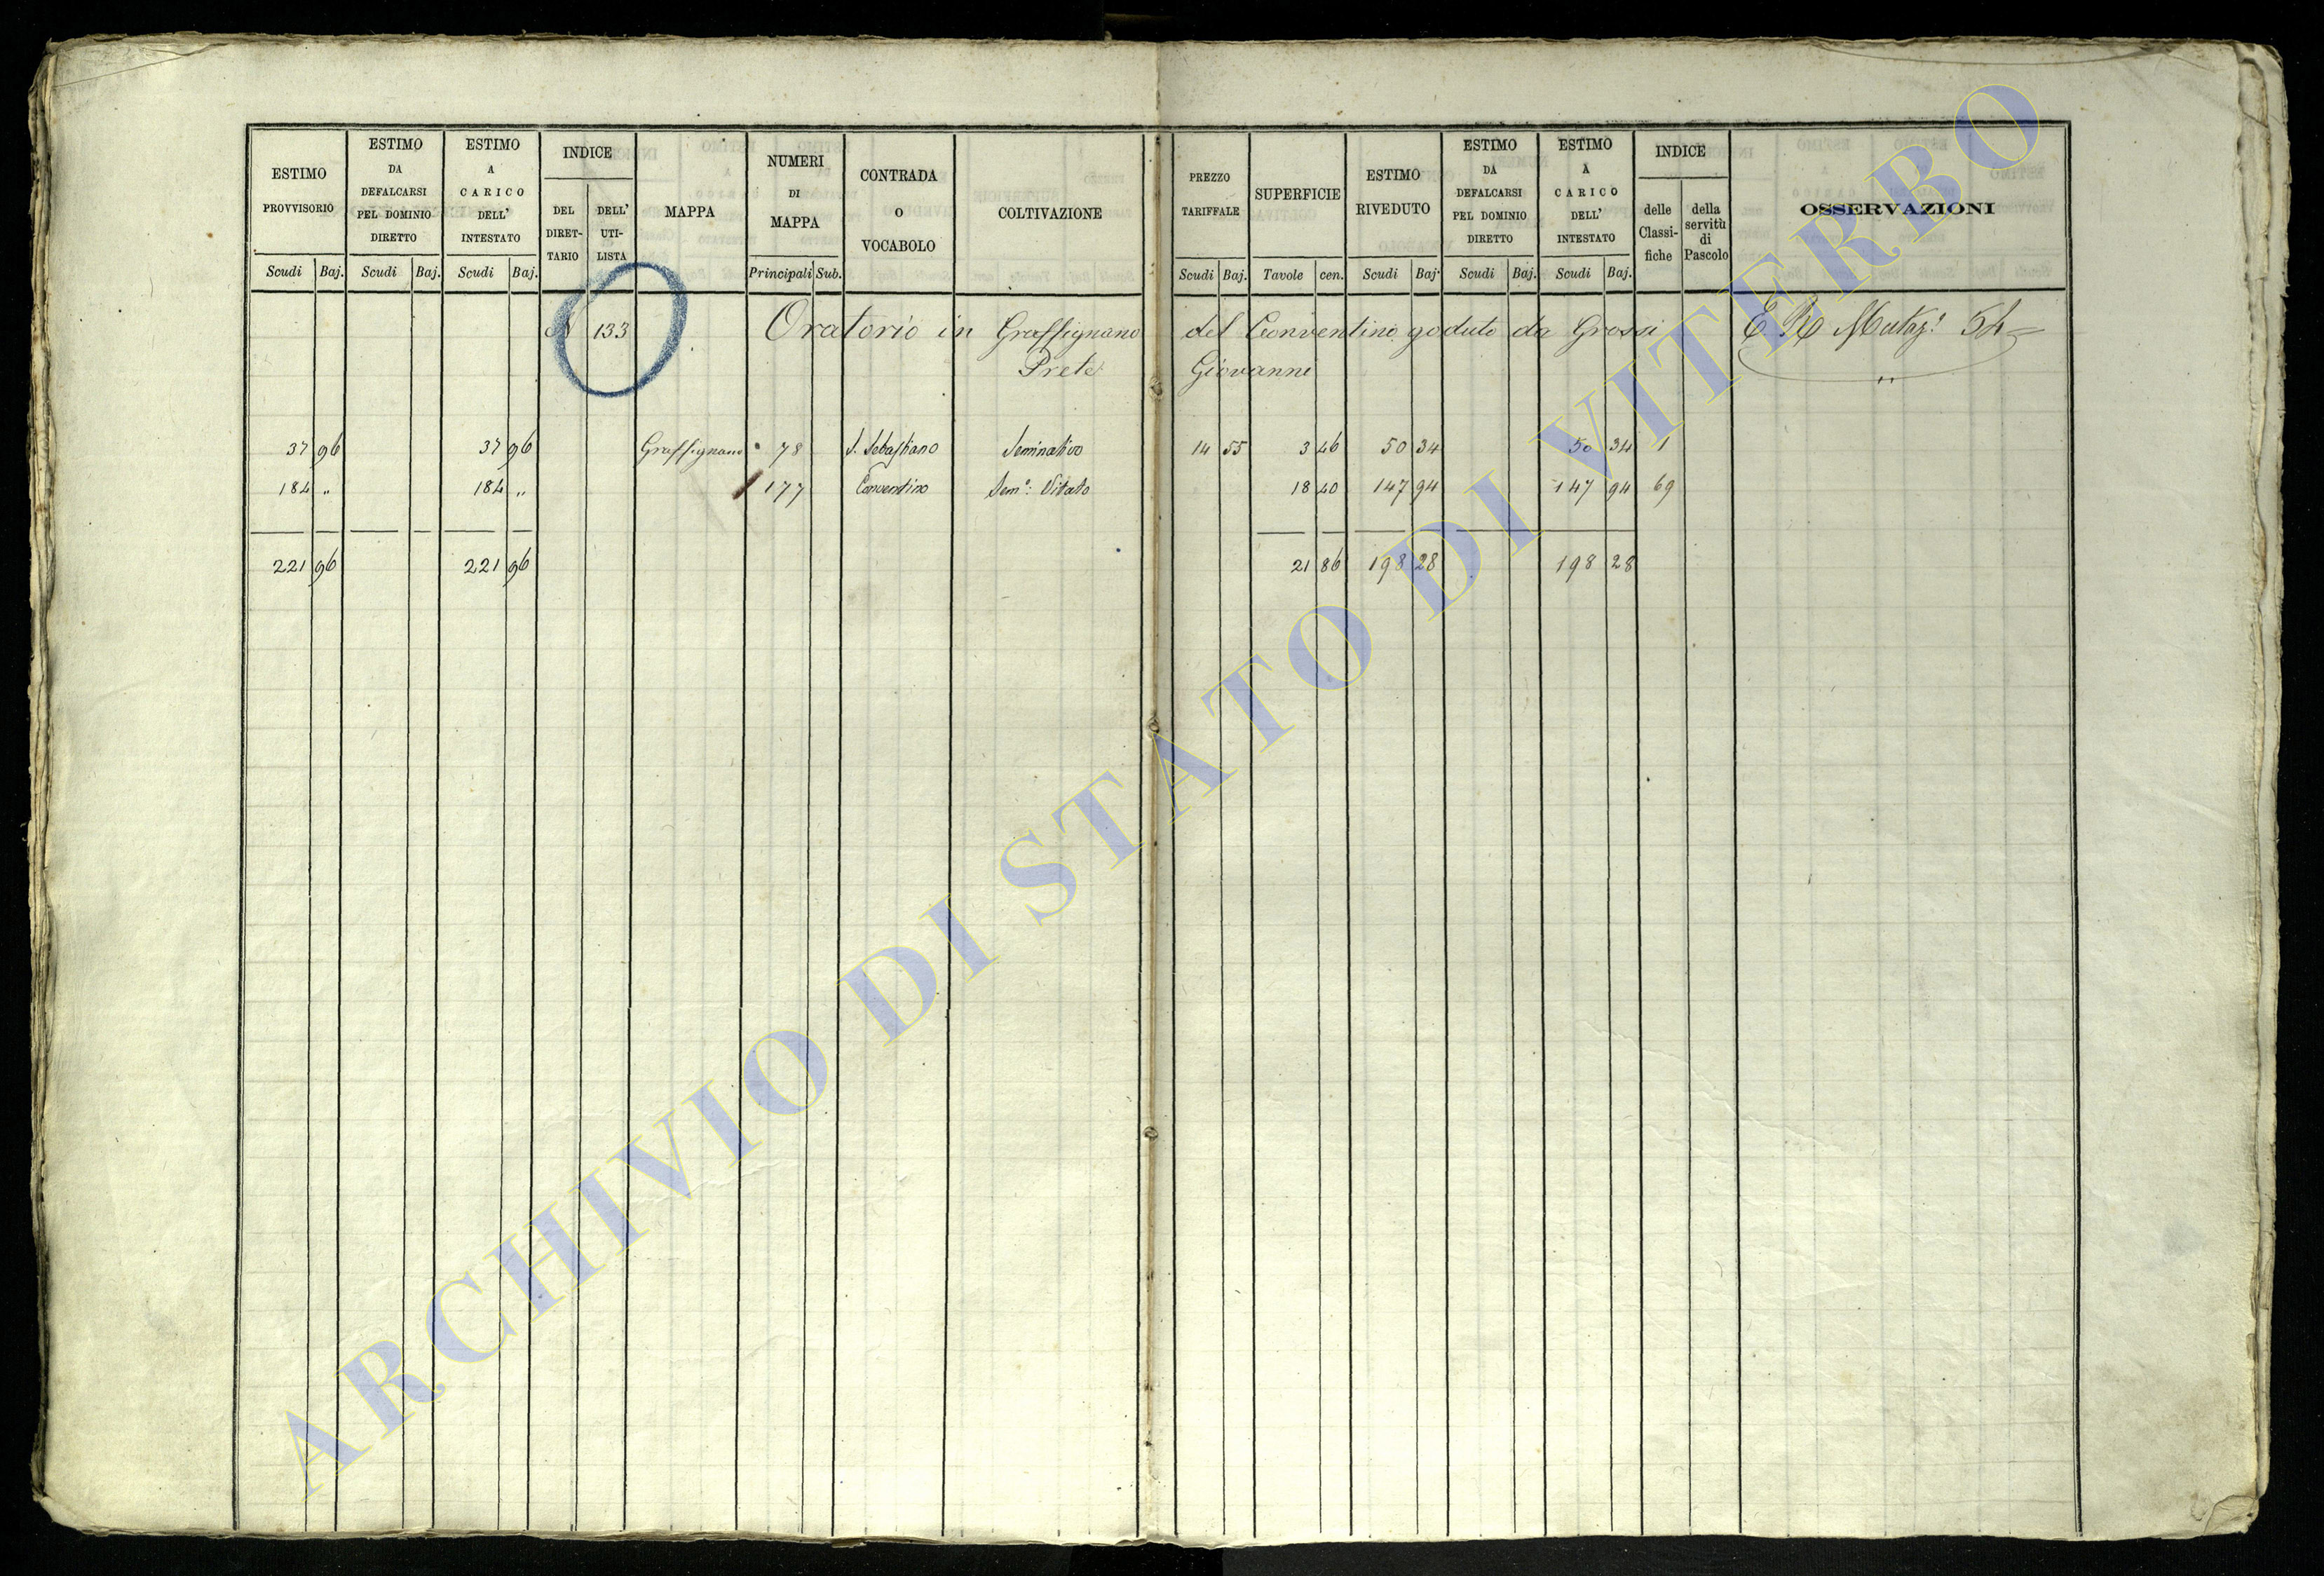 ESTIMO PROVVISORIO | ESTIMO DA DEFALCARSI PEL DOMINIO DIRETTO | ESTIMO A CARICO DELL' INTESTATO | INDICE DEL DIRET-TARIO | DELL' UTI-LISTA | MAPPA | NUMERI DI MAPPA | CONTRADA O VOCABOLO | COLTIVAZIONE | PREZZO TARIFFALE | SUPERFICIE | ESTIMO RIVEDUTO | ESTIMO DA DEFALCARSI PEL DOMINIO DIRETTO | ESTIMO A CARICO DELL' INTESTATO | INDICE delle Classi-fiche | della servitù di Pascolo | OSSERVAZIONI
Scudi Baj. | Scudi Baj. | Scudi Baj. | Principali Sub. | Scudi Baj. | Tavole cen. | Scudi Baj. | Scudi Baj. | Scudi Baj.
N 133 Oratorio in Graffignano del Conventino goduto da Grossi E. R. 54
Prete Giovanni "
37 96 37 96 Graffignano 78 S. Sebastiano Seminativo 14 55 3 46 50 34 50 34 1
184 " 184 " 177 Conventino Sem.º: Vitato 18 40 147 94 147 94 69
221 96 221 96 21 86 198 28 198 28
ARCHIVIO DI STATO DI VITERBO